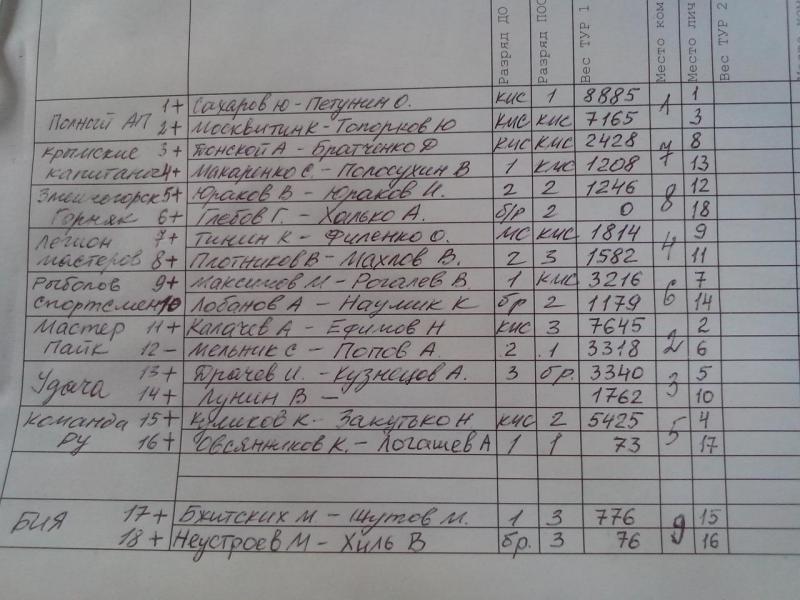 Разряд ДО Разряд ПОС Вес ТУР 1 Место ком Место лич Вес ТУР 2
1+ Сахаров Ю - Петунин О. кмс 1 8885 1 1
Полный АП 2+ Москвитин К - Топорков Ю кмс кмс 7165 3
Крымские 3+ Донской А - Братченко Ф кмс кмс 2428 7 8
капитаны 4+ Макаренко С. - Полосухин В 1 кмс 1208 13
Змеиногорск 5+ Юраков В - Юраков И. 2 2 1246 8 12
Горняк 6+ Глебов Г. - Халько А. б/р 2 0 18
Легион 7+ Тинин К - Филенко О. мс кмс 1814 4 9
мастеров 8+ Плотников В - Махлов В. 2 3 1582 11
Рыболов 9+ Максимов М - Рогалев В. 1 кмс 3216 6 7
спортсмен 10 Лобанов А - Наумик К бр 2 1179 14
Мастер 11+ Калачев А - Ефимов Н кмс 3 7645 2 2
Пайк 12- Мельник С - Попов А. 2 1 3318 6
Удача 13+ Драчев И. - Кузнецов А. 3 бр. 3340 3 5
14+ Лунин В - 1762 10
Команда 15+ Куликов К. - Закутько Н кмс 2 5425 5 4
РУ 16+ Овсянников К. - Логашев А 1 1 73 17
БИЯ 17+ Бхитских М. - Шутов М. 1 3 776 9 15
18+ Неустроев М - Хиль В бр. 3 76 16